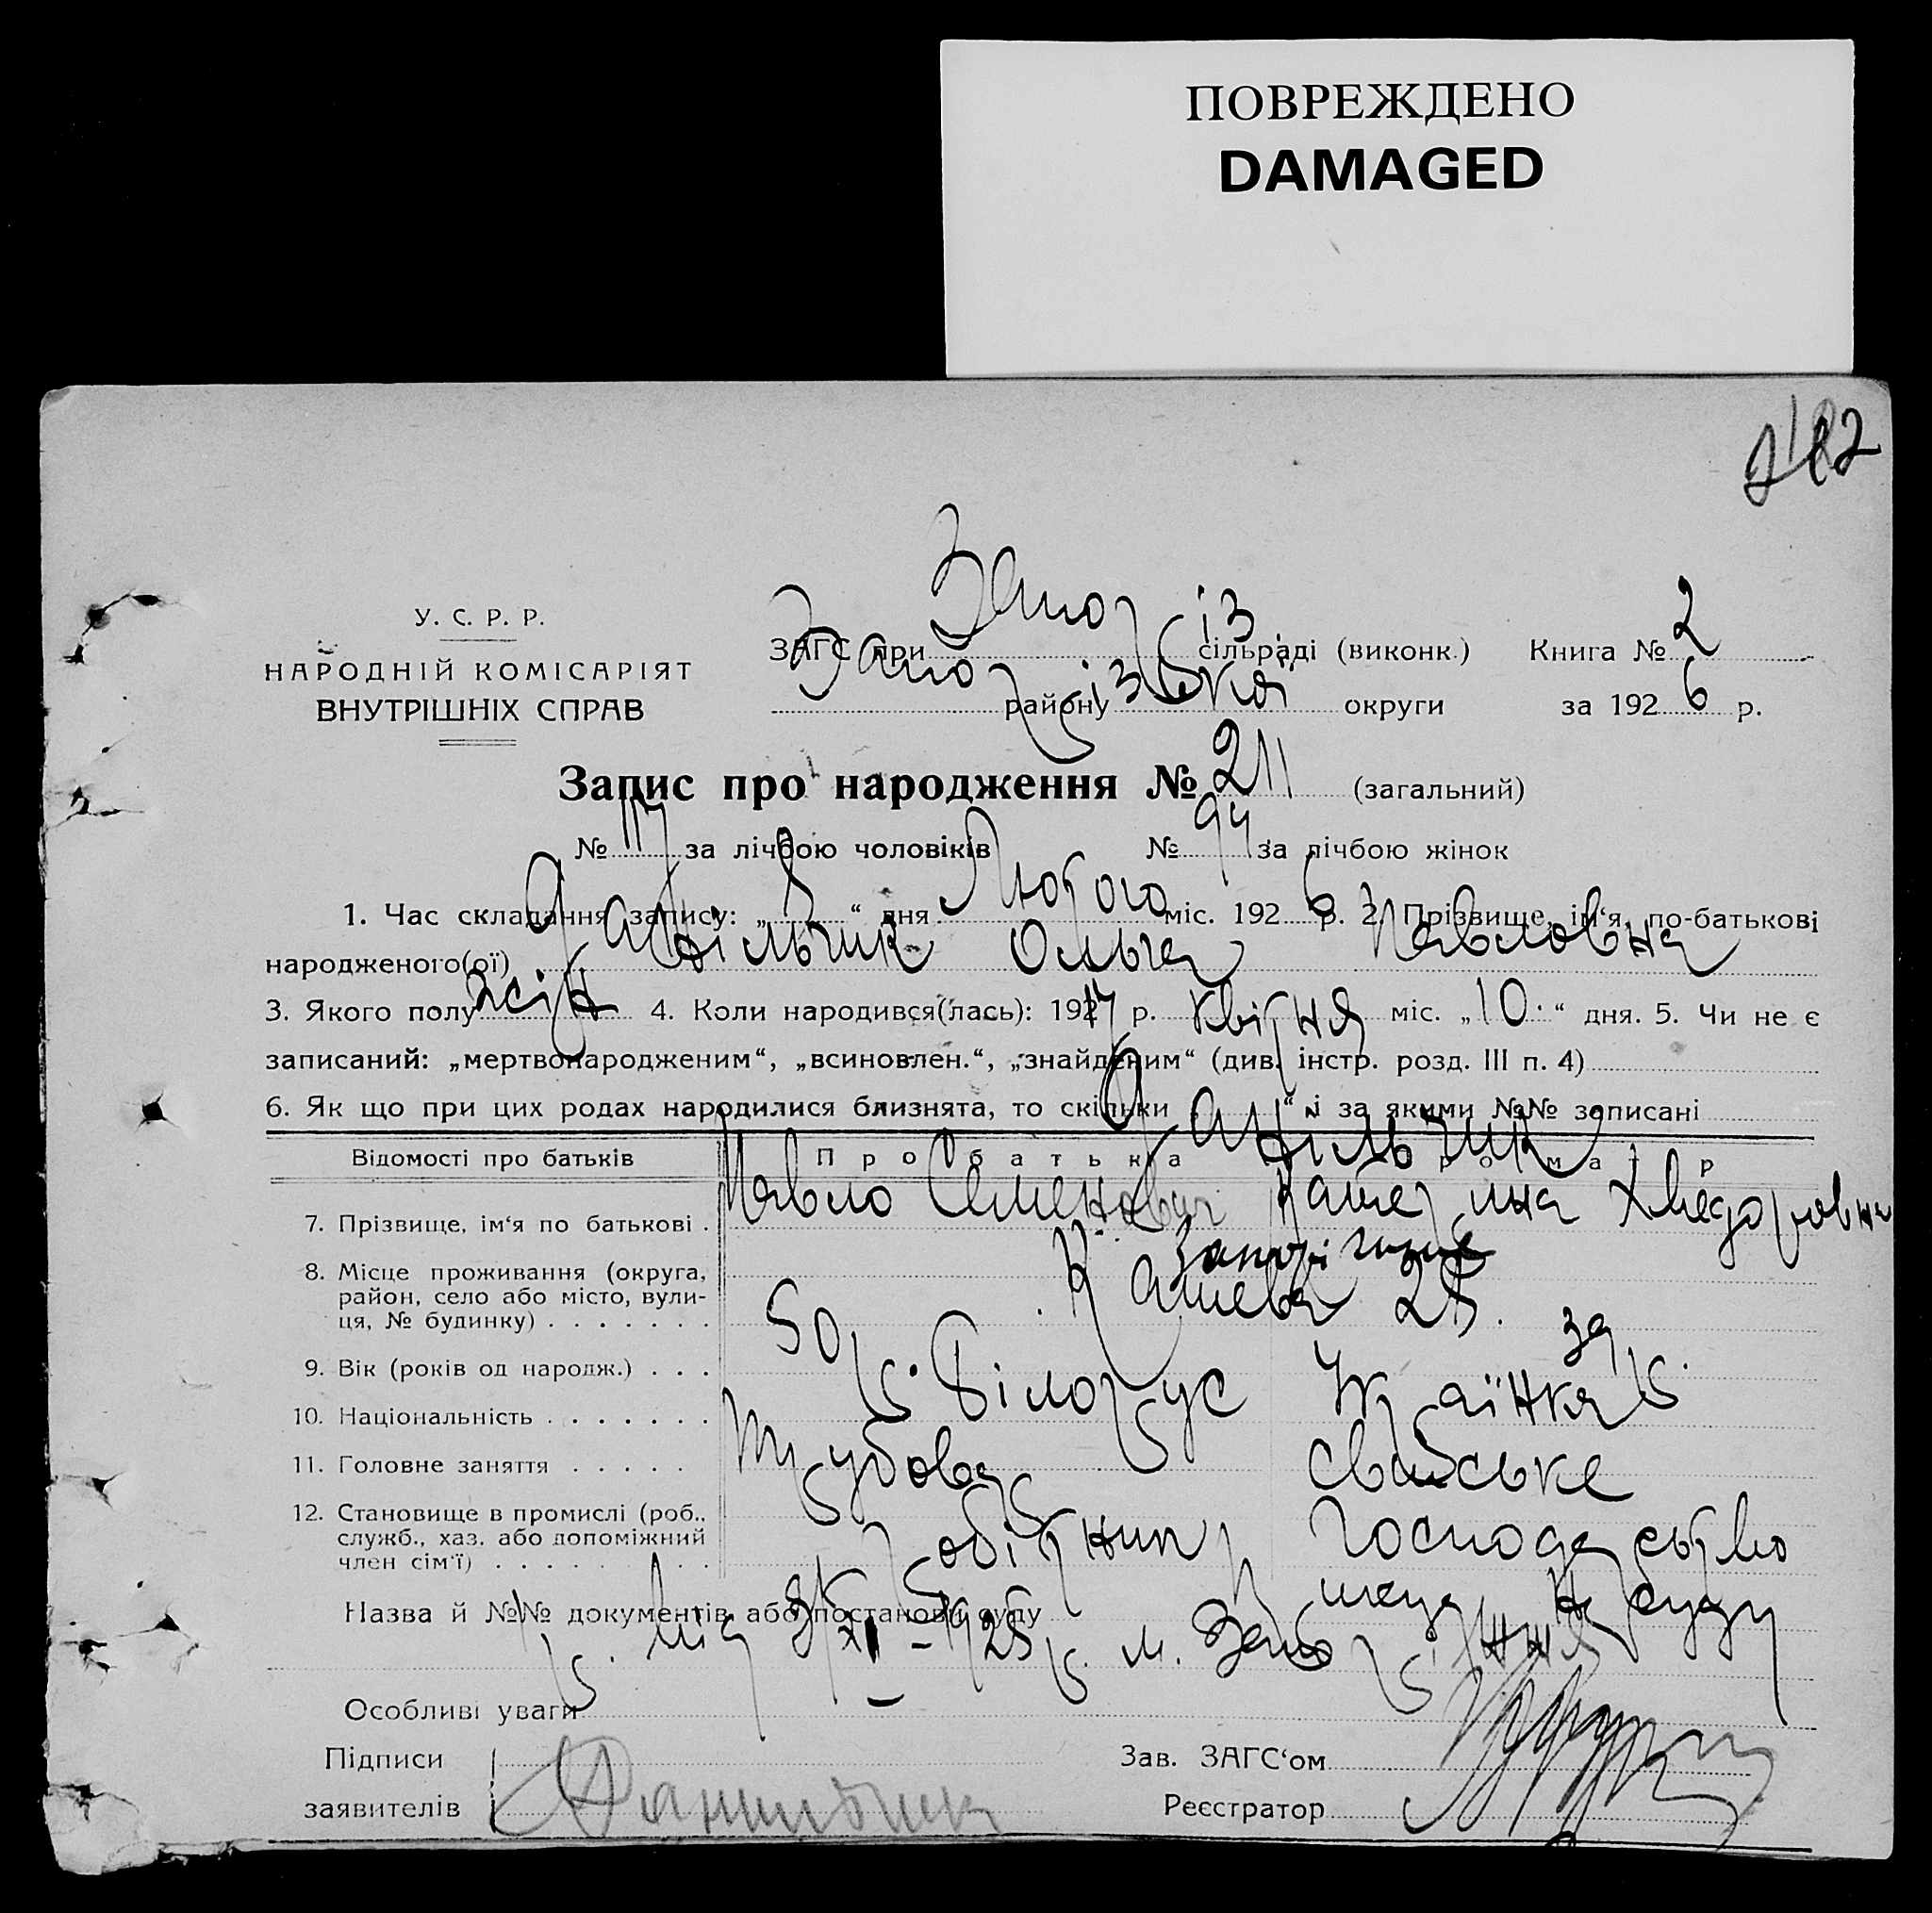 ПОВРЕЖДЕНО
DAMAGED
У. С. Р. Р.
НАРОДНІЙ КОМІСАРІЯТ
ВНУТРІШНІХ СПРАВ
ЗАГС при Запоріз сільраді (виконк.) Книга № 2
району Запорізької округи за 1926 р.
Запис про народження № 211 (загальний)
№ 117 за лічбою чоловіків № 94 за лічбою жінок
1. Час складання запису: „8“ дня Лютого міс. 1926 р. 2. Прізвище, ім‘я, по-батькові
народженого(ої) Данільчик Ольга Павловна
3. Якого полу жін 4. Коли народився(лась): 1917 р. квітня міс. „10“ дня. 5. Чи не є
записаний: „мертвонародженим“, „всиновлен.“, „знайденим“ (див. інстр. розд. III п. 4)
6. Як що при цих родах народилися близнята, то скільки „ “ і за якими №№ записані
Данильчик
Відомості про батьків Про батька Про матір
7. Прізвище, ім‘я по батькові . Павло Семенович Катерина Хведоровна
8. Місце проживання (округа, район, село або місто, вулиця, № будинку) Запоріжжє
25.
9. Вік (років од народж.) . . . 50 р. 39 р.
10. Національність . . . . . . Білорус Українка
11. Головне заняття . . . . . свійське
12. Становище в промислі (роб., служб., хаз. або допоміжний член сім‘ї) робітник господарство
Назва й №№ документів або постанови суду
1925 р. м. Запоріжжя
Особливі уваги
Підписи Зав. ЗАГС‘ом
заявителів Данильчик Реєстратор